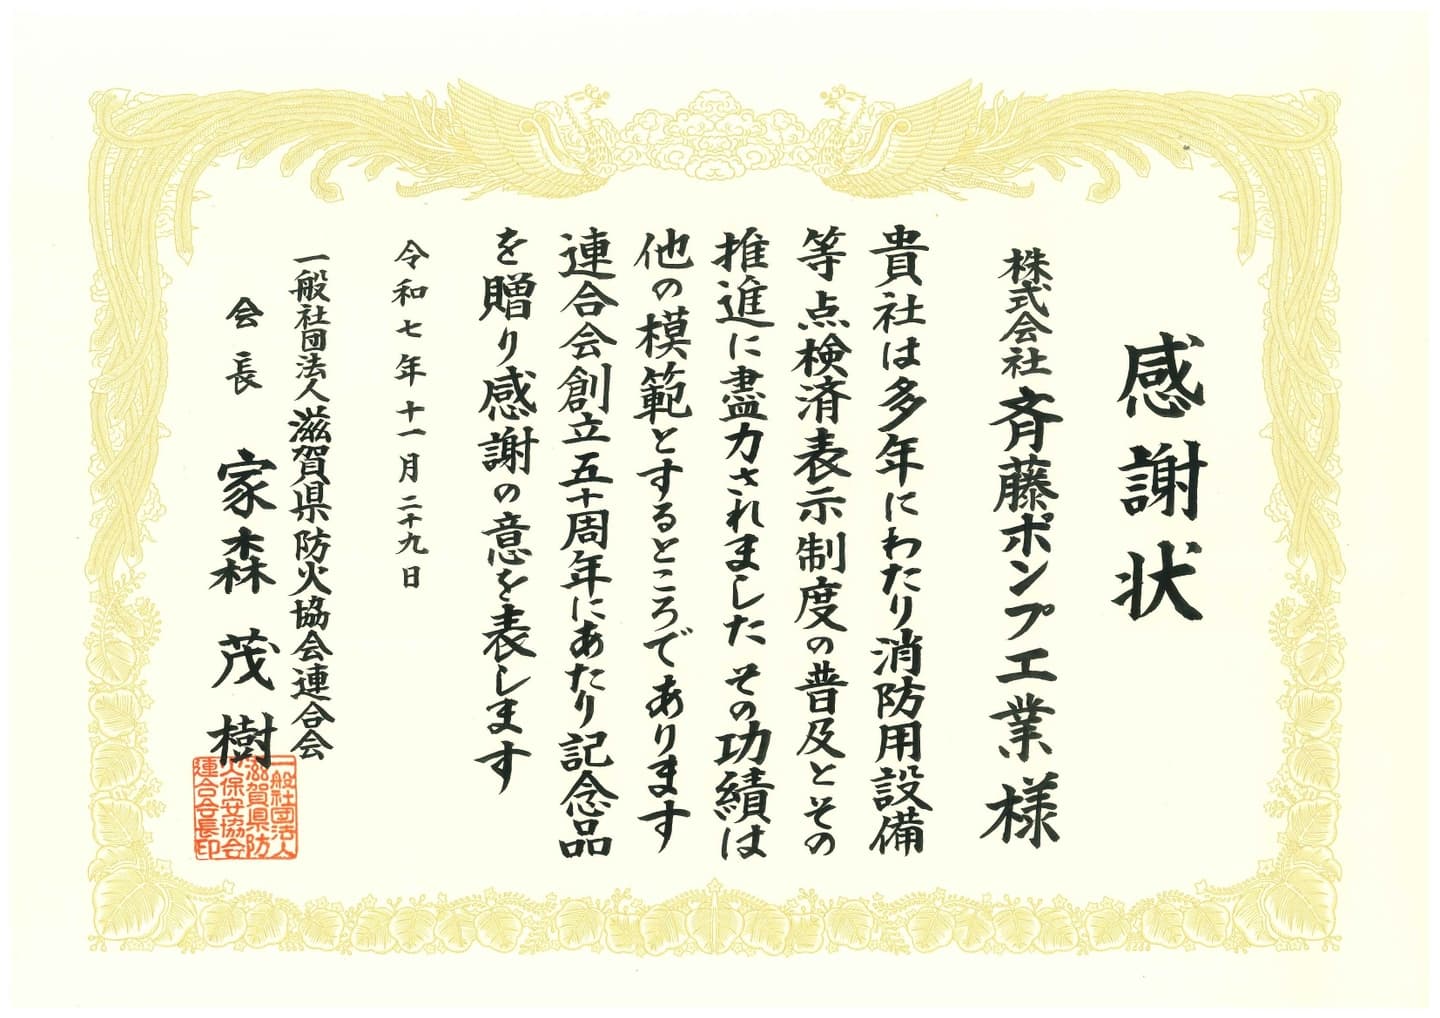 感謝状
株式会社 斉藤ポンプ工業様
貴社は多年にわたり消防用設備
等点検済表示制度の普及とその
推進に盡力されました その功績は
他の模範とするところであります
連合会創立五十周年にあたり記念品
を贈り感謝の意を表します
令和七年十一月二十九日
一般社団法人 滋賀県防火協会連合会
会長 家森茂樹
一般社団法人
滋賀県防
火保安協会
連合会長印